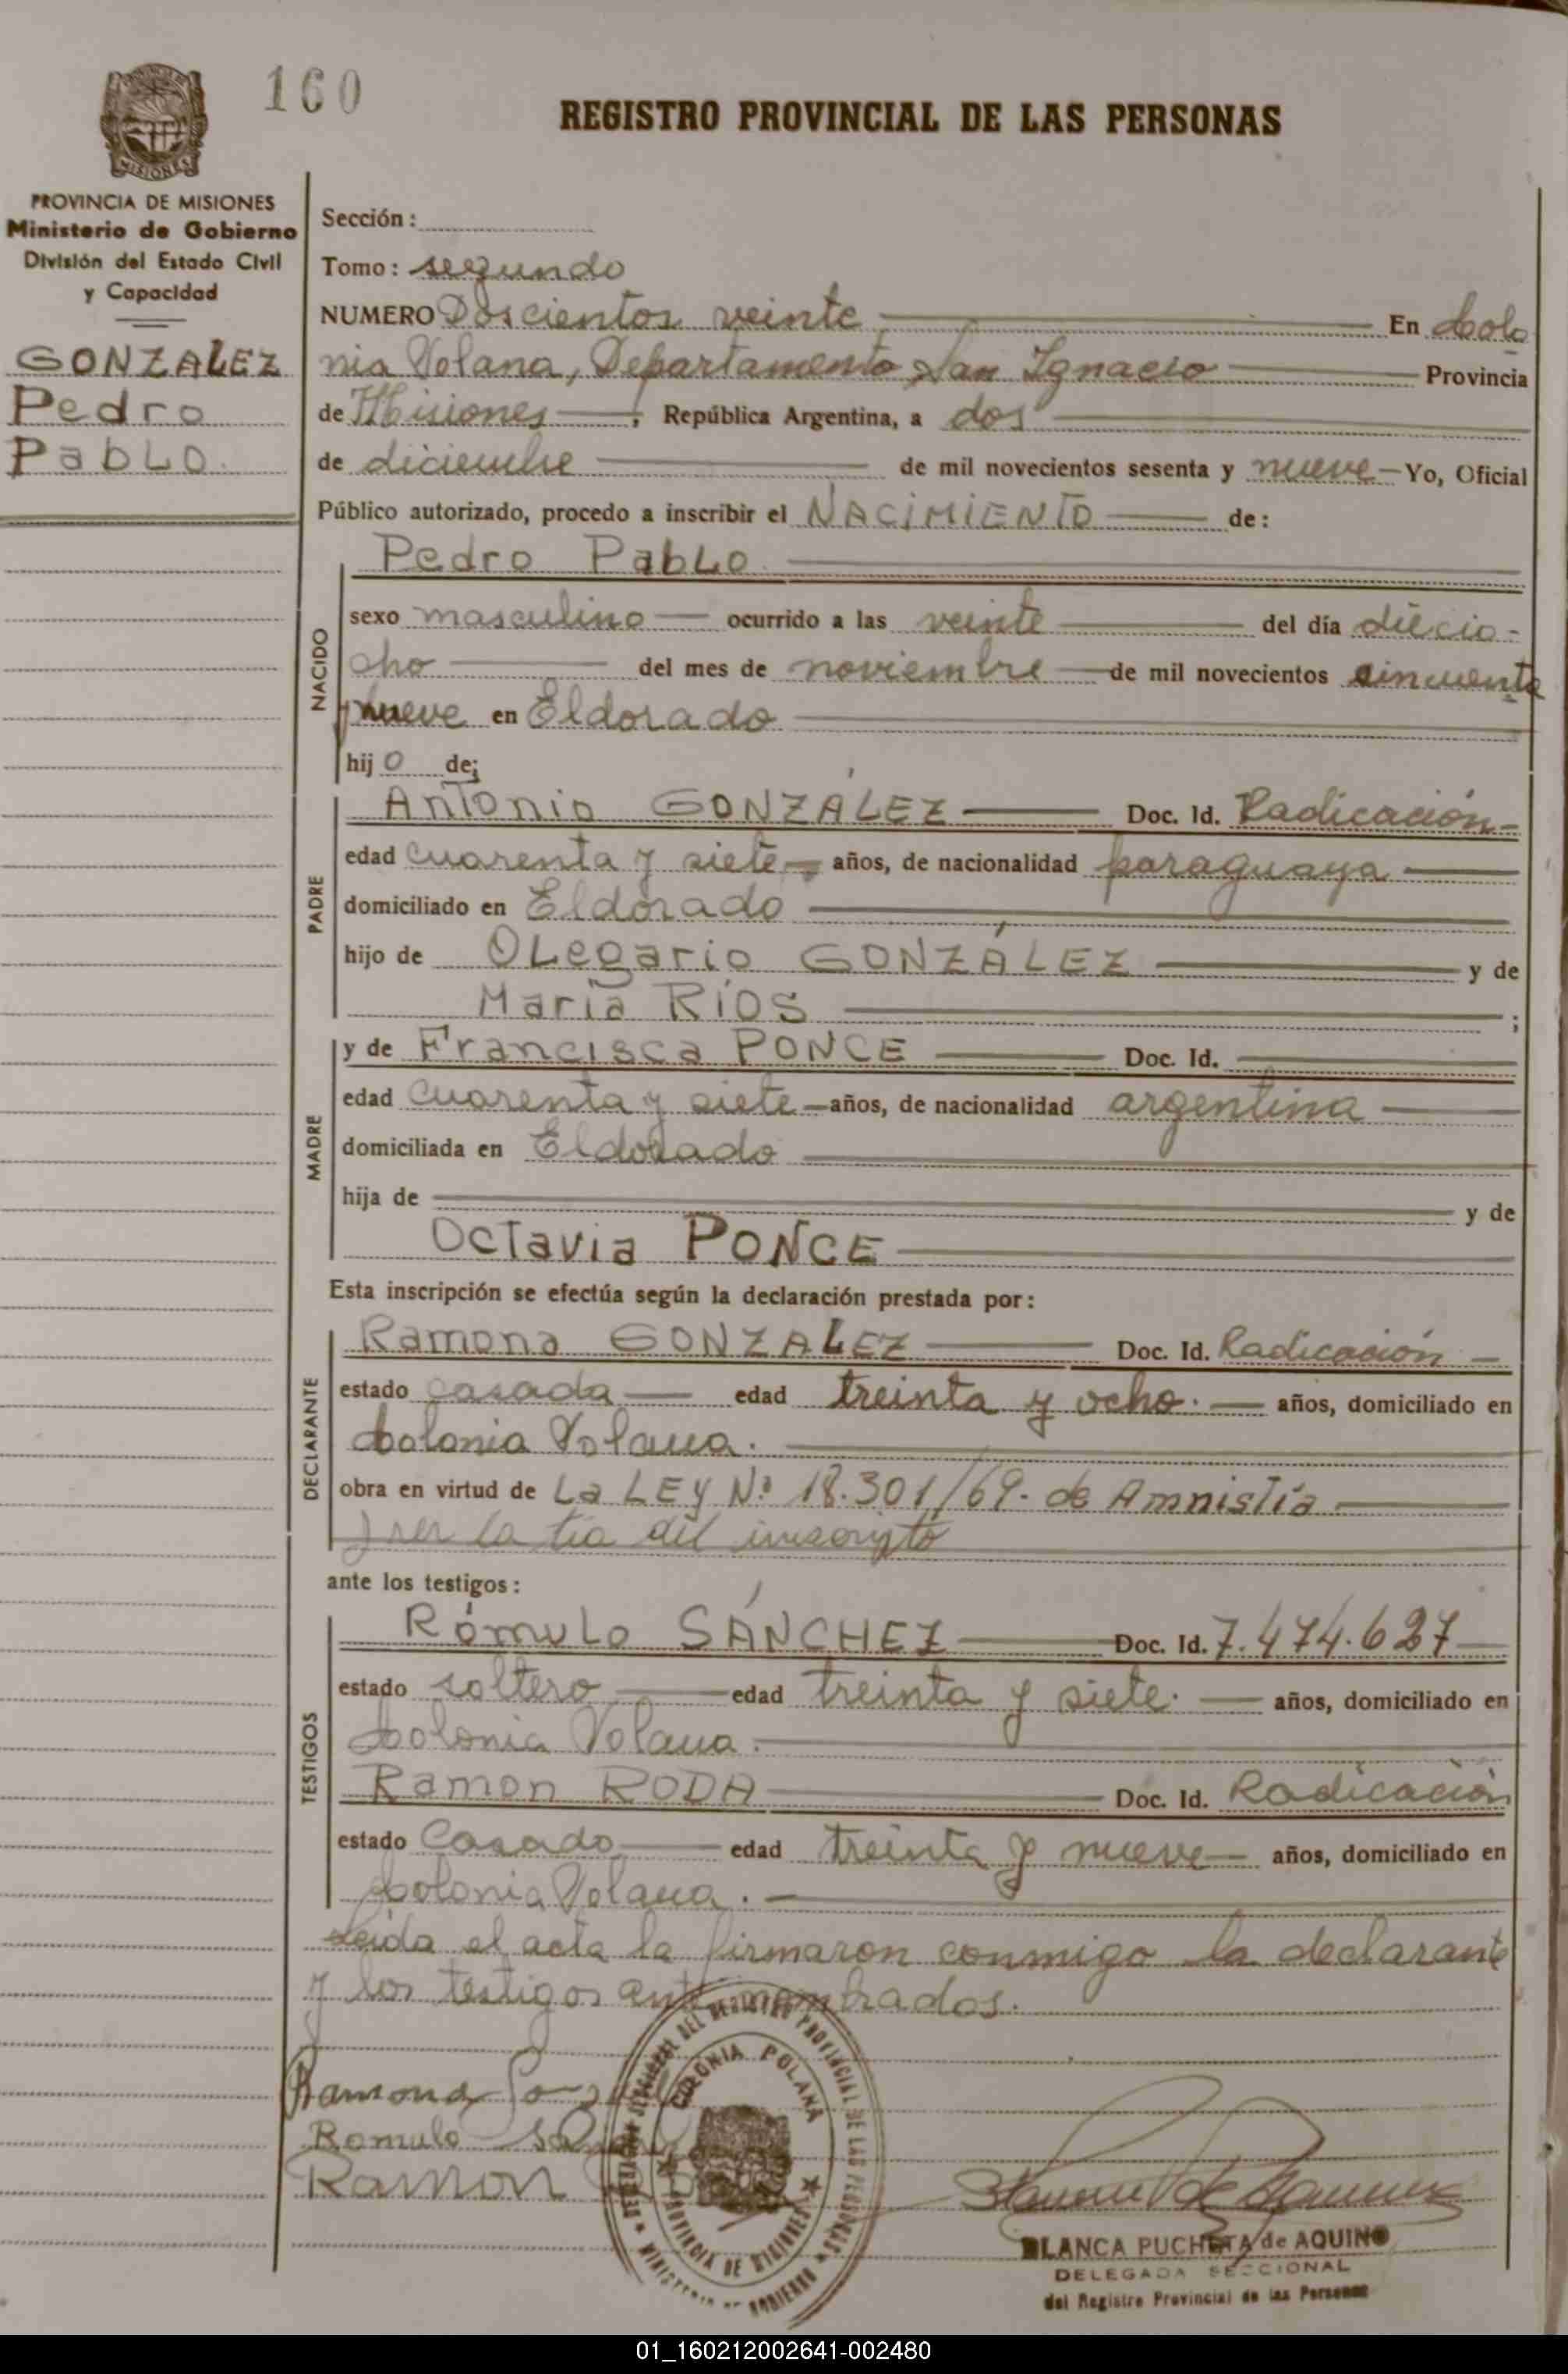 160
REGISTRO PROVINCIAL DE LAS PERSONAS
MISIONES
PROVINCIA DE MISIONES
Ministerio de Gobierno
División del Estado Civil
y Capacidad
GONZALEZ
Pedro
Pablo.
Sección:
Tomo: segundo
NUMERO Doscientos veinte En Colo
nia Polana, Departamento San Ignacio Provincia
de Misiones, República Argentina, a dos
de diciembre de mil novecientos sesenta y nueve Yo, Oficial
Público autorizado, procedo a inscribir el NACIMIENTO de:
Pedro Pablo
NACIDO
sexo masculino ocurrido a las veinte del día diecio-
cho del mes de noviembre de mil novecientos cincuenta
y nueve en Eldorado
hijo de;
PADRE
Antonio GONZÁLEZ Doc. Id. Radicación
edad cuarenta y siete años, de nacionalidad paraguaya
domiciliado en Eldorado
hijo de Olegario GONZÁLEZ y de
María RÍOS ;
MADRE
y de Francisca PONCE Doc. Id.
edad cuarenta y siete años, de nacionalidad argentina
domiciliada en Eldorado
hija de y de
Octavia PONCE
Esta inscripción se efectúa según la declaración prestada por:
DECLARANTE
Ramona GONZALEZ Doc. Id. Radicación
estado casada edad treinta y ocho. años, domiciliado en
Colonia Polana.
obra en virtud de La LEY Nº 18.301/69. de Amnistía
y ser la tía del inscripto
ante los testigos:
TESTIGOS
Rómulo SÁNCHEZ Doc. Id. 7.474.627
estado soltero edad treinta y siete. años, domiciliado en
Colonia Polana.
Ramon RODA Doc. Id. Radicación
estado Casado edad treinta y nueve años, domiciliado en
Colonia Polana.
Leída el acta la firmaron conmigo la declarante
y los testigos antes nombrados.
Ramona
Romulo
Ramon
DEL REGISTRO PROVINCIAL DE LAS PERSONAS
COLONIA POLANA
PROVINCIA DE MISIONES
MINISTERIO DE GOBIERNO
BLANCA PUCHETA de AQUINO
DELEGADA SECCIONAL
del Registro Provincial de las Personas
01_160212002641-002480